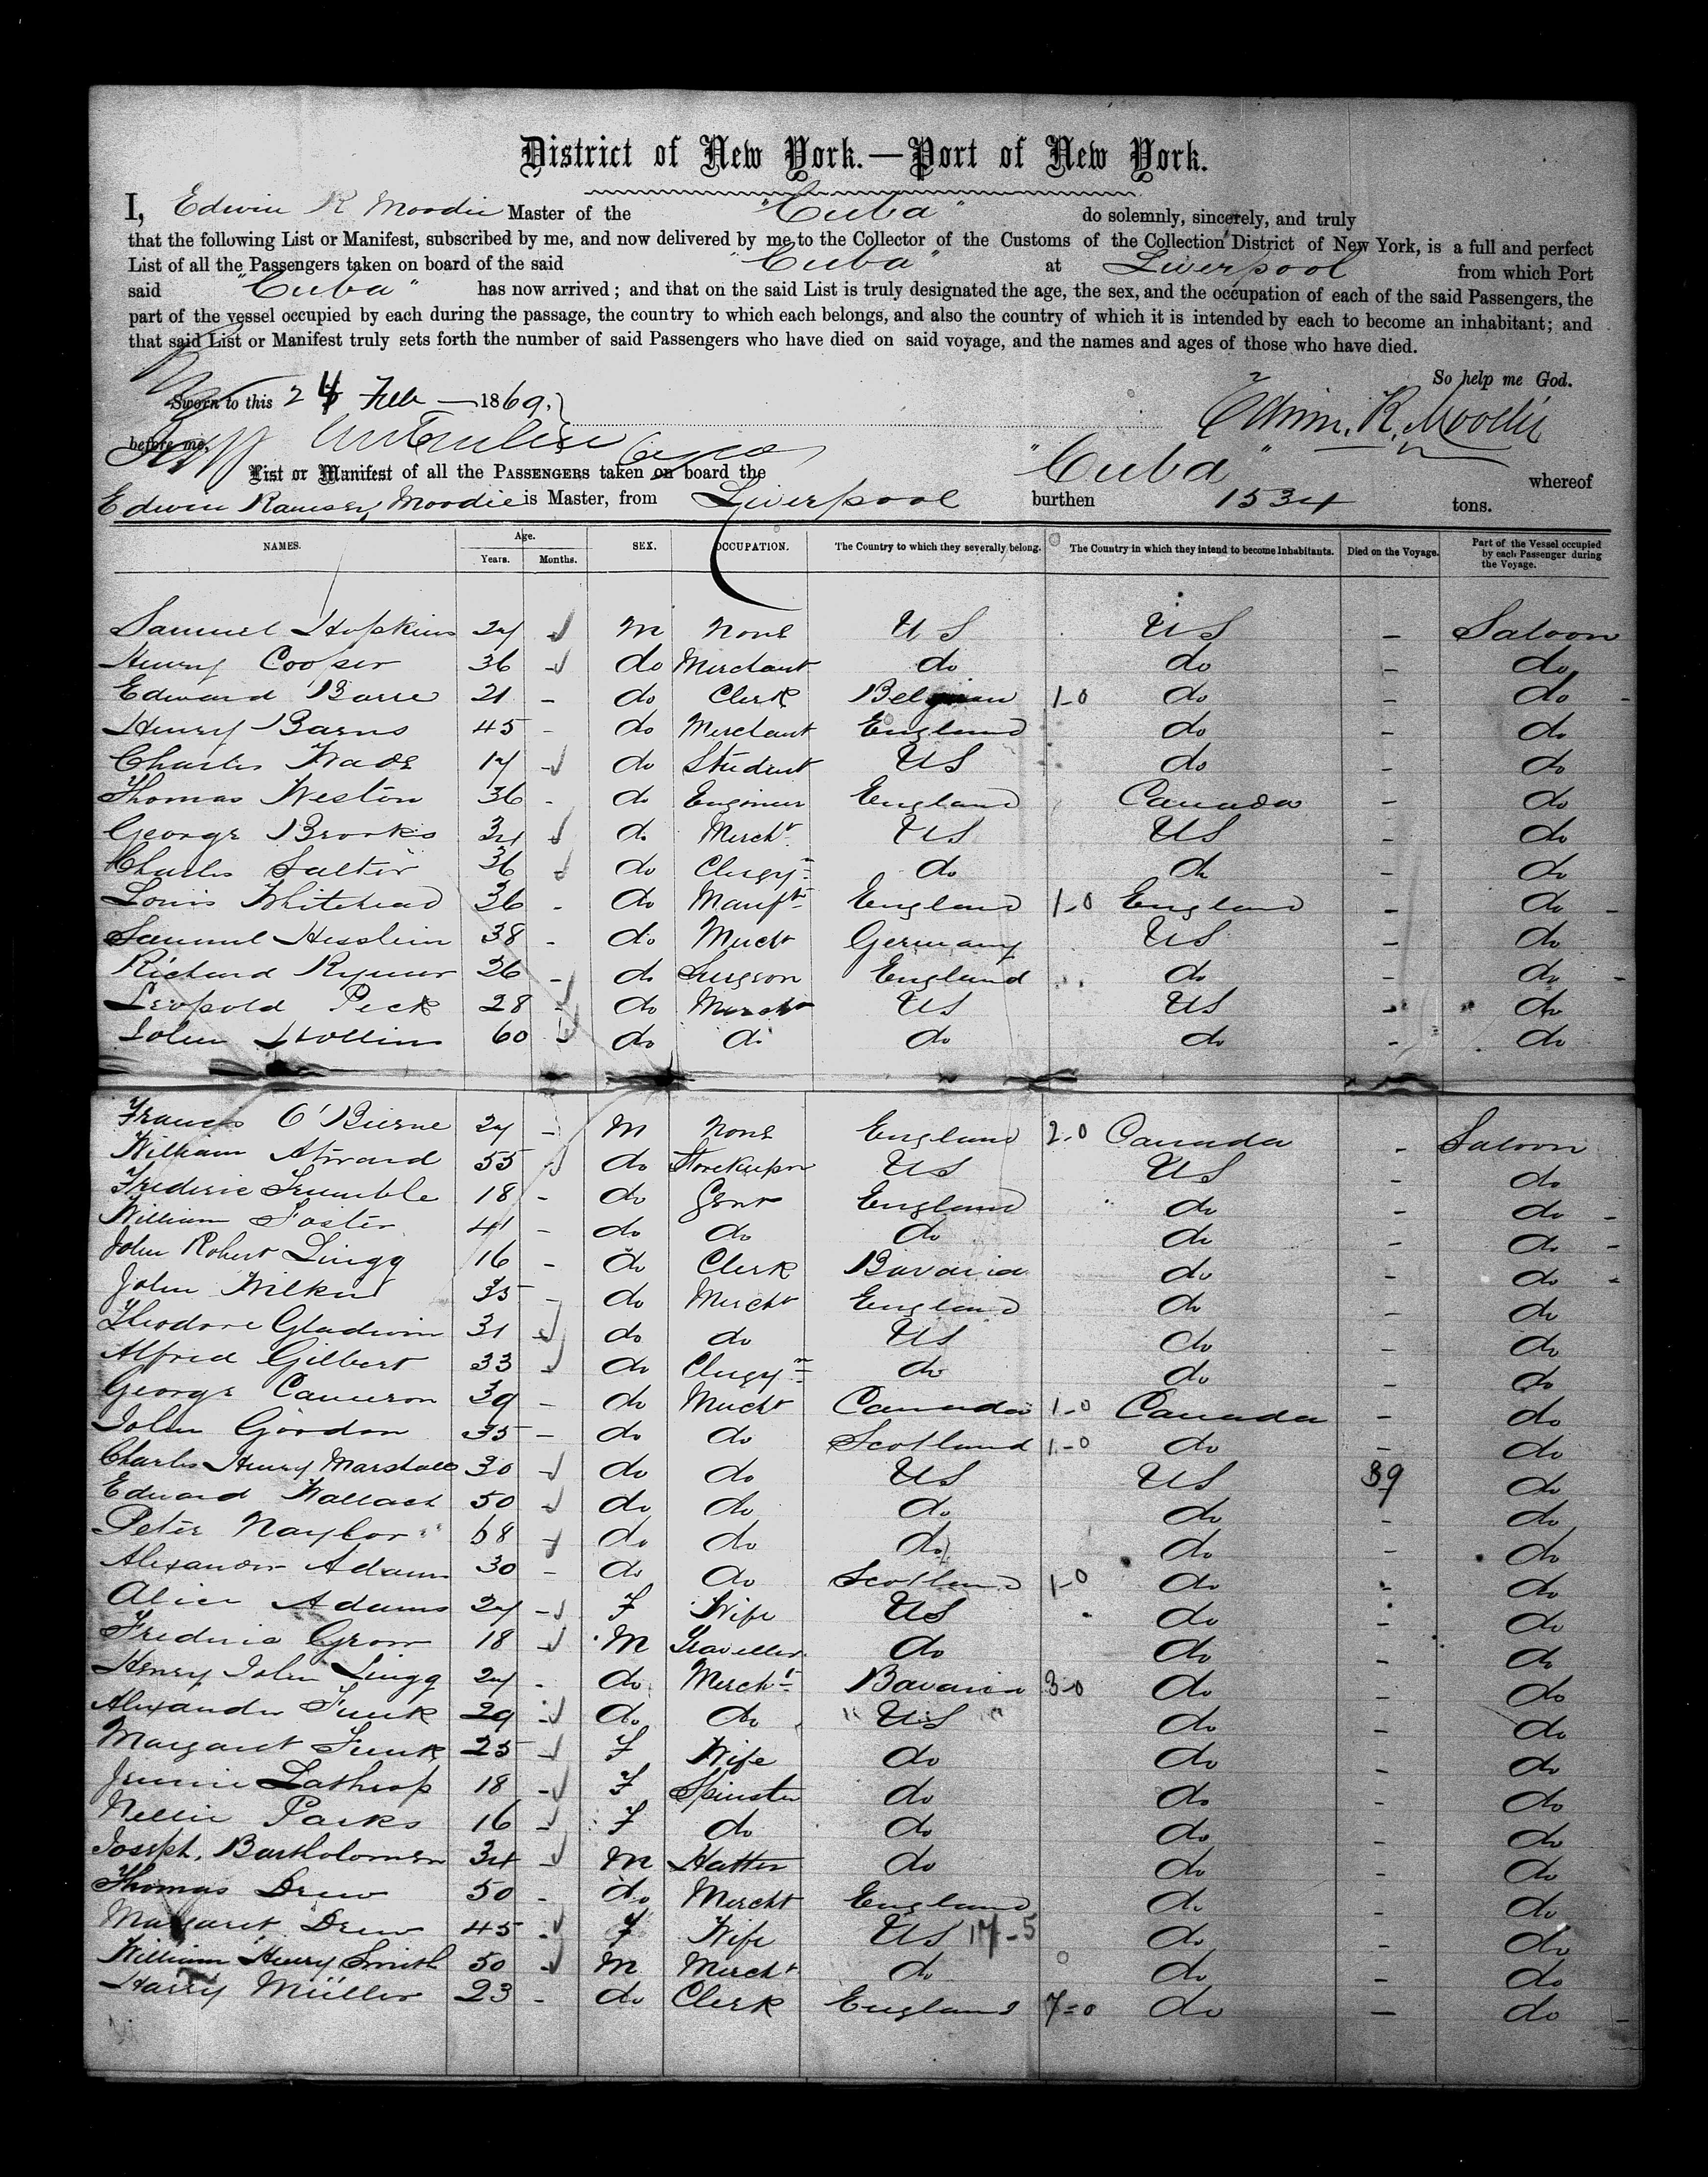 District of New York.—Port of New York.
I, Edwin R Moodie Master of the "Cuba" do solemnly, sincerely, and truly
that the following List or Manifest, subscribed by me, and now delivered by me to the Collector of the Customs of the Collection District of New York, is a full and perfect
List of all the Passengers taken on board of the said "Cuba" at Liverpool from which Port
said "Cuba" has now arrived; and that on the said List is truly designated the age, the sex, and the occupation of each of the said Passengers, the
part of the vessel occupied by each during the passage, the country to which each belongs, and also the country of which it is intended by each to become an inhabitant; and
that said List or Manifest truly sets forth the number of said Passengers who have died on said voyage, and the names and ages of those who have died.
So help me God.
Sworn to this 24 Feb 1869.
Edwin. R. Moodie
before me,
List or Manifest of all the PASSENGERS taken on board the "Cuba" whereof
Edwin Ramsey Moodie is Master, from Liverpool burthen 1534 tons.
NAMES. Age. Years. Months. SEX. OCCUPATION. The Country to which they severally belong. The Country in which they intend to become Inhabitants. Died on the Voyage. Part of the Vessel occupied by each Passenger during the Voyage.
Samuel Hopkins 24 M None US US - Saloon
Henry Cooper 36 do Merchant do do - do
Edward Barre 21 - do Clerk Belgian 1-0 do - do -
Henry Barns 45 - do Merchant England do - do
Charles Wade 17 do Student US do - do
Thomas Weston 36 - do Engineer England Canada - do
George Brooks 34 do Mercht US US - do
Charles Salter 36 do Clergyn do do - do
Louis Whitehead 36 - do Manft England 1-0 England - do -
Samuel Hesslein 38 - do Mercht Germany US - do
Richard Rymer 26 - do Surgeon England do - do -
Leopold Peck 28 do Mercht US US - do
John Hollins 60 do do do do - do
Francis O'Bierne 24 - M None England 2-0 Canada - Saloon
William Atward 55 do Storekeeper US US - do
Frederic Trumble 18 - do Gent England do - do -
William Foster 41 - do do do do - do -
John Robert Lingg 16 - do Clerk Bavaria do - do -
John Wilken 35 - do Mercht England do - do
Theodore Gladwin 31 do do US do - do
Alfred Gilbert 33 do Clergyn do do - do
George Cameron 39 - do Mercht Canada 1-0 Canada - do
John Gordon 35 - do do Scotland 1-0 do - do
Charles Henry Marshall 30 do do US US 39 do
Edward Wallach 50 do do do do - do
Peter Naylor 68 do do do do - do
Alexander Adams 30 - do do Scotland 1-0 do - do
Alice Adams 24 F Wife US do - do
Frederic Grow 18 M Traveller do do - do
Henry John Lingg 24 - do Mercht Bavaria 3-0 do - do
Alexander Funk 29 do do " US " do - do
Margaret Funk 25 F Wife do do - do
Jennie Lathrop 18 F Spinster do do - do
Nellie Parks 16 F do do do - do
Joseph Bartholomew 34 M Hatter do do - do
Thomas Drew 50 - do Mercht England do - do
Margaret Drew 45 F Wife US 17-5 do - do
William Henry Smith 50 M Mercht do do - do
Harry Müller 23 - do Clerk England 7=0 do - do -